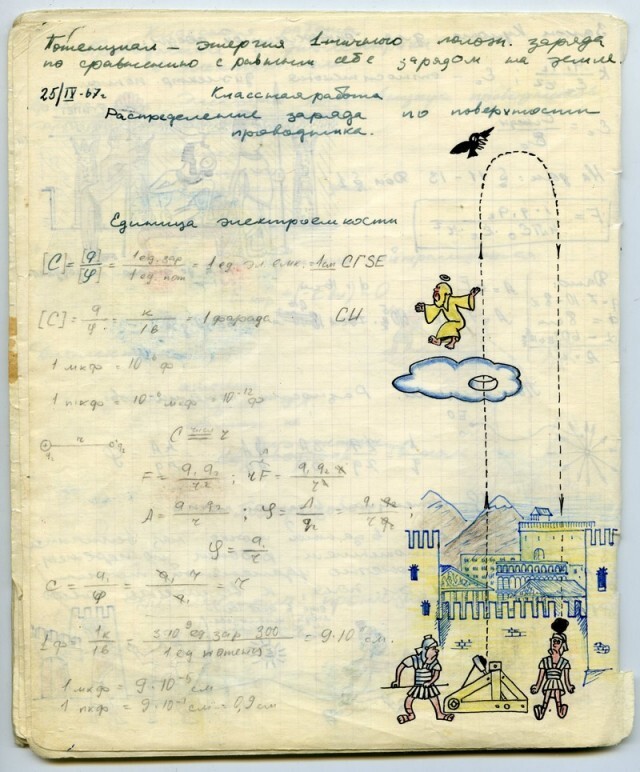 Потенциал – энергия 1-ничного полож. заряда
по сравнению с равным себе зарядом на земле.
25/IV-67г. Классная работа
Распределение заряда по поверхности
проводника.
Единица электроемкости
[C] = [q]/[φ] = 1 ед. зар / 1 ед. пот = 1 ед. эл. емк. = 1 см СГSE
[C] = q/φ = к/1в = 1 фарада СИ
1 мкф = 10 ф
1 пкф = 10⁻⁶ мкф = 10⁻¹² ф
C = r
F = q₁ q₂ / r² ; rF = q₁ q₂ r / r²
A = q₁ q₂ / r ; φ = A / q₂ = q₁ q₂ / r q₂ ;
φ = q / r
C = q₁ / φ = q₁ r / q₁ = r
1ф = 1к / 1в = 3·10⁹ ед. зар 300 / 1 ед потенц = 9·10 см.
1 мкф = 9·10⁻⁵ см
1 пкф = 9·10⁻¹ см = 0,9 см